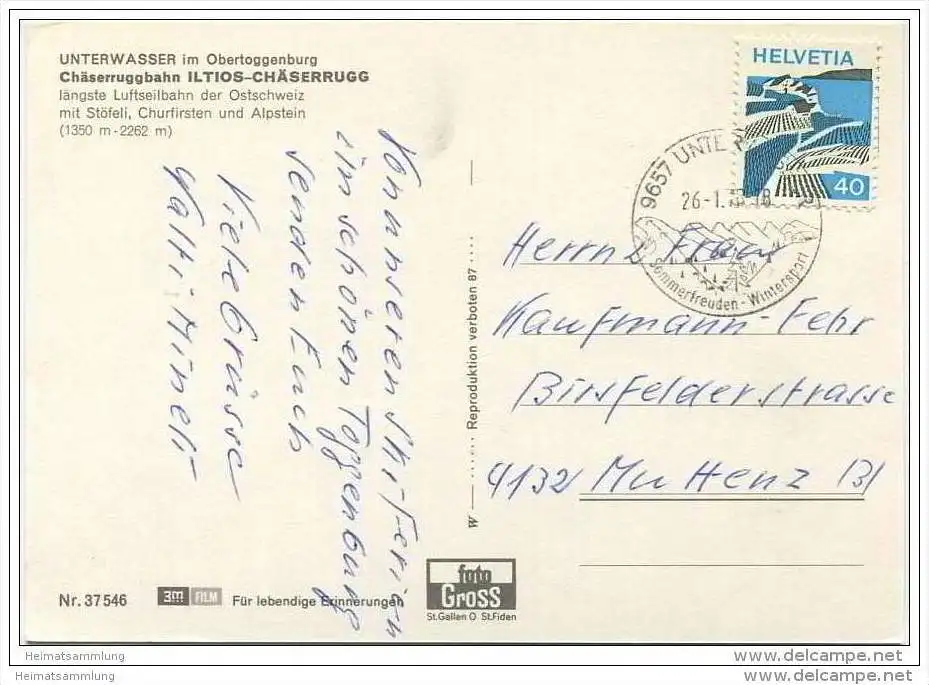 UNTERWASSER im Obertoggenburg
Chäserruggbahn ILTIOS-CHÄSERRUGG
längste Luftseilbahn der Ostschweiz
mit Stöfeli, Churfirsten und Alpstein
(1350 m - 2262 m)
Von unseren Ski-Ferien
im schönen Toggenburg
senden Euch
Viele Grüsse
HELVETIA
40
9657 UNTE
26-1. 18
Sommerfreuden - Wintersport
Herrn & Frau
Kaufmann-Fehr
Birsfelderstrasse
4132 Muttenz Bl
W — Reproduktion verboten 87
Nr. 37546
3M FILM
Für lebendige Erinnerungen
foto
GROSS
St.Gallen O St.Fiden
Heimatsammlung
www.delcampe.net
Heimatsammlung
www.delcampe.net